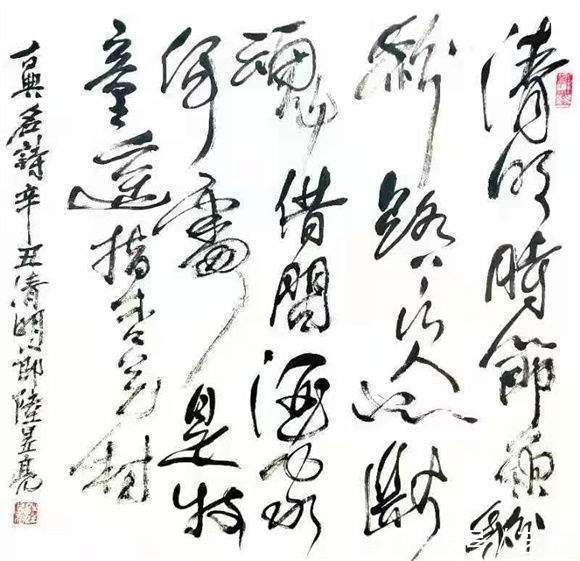 清明時節雨紛
紛路上行人欲斷
魂借問酒家
何處是牧
童遙指杏花村
古典名詩辛丑清明節陸昱亮